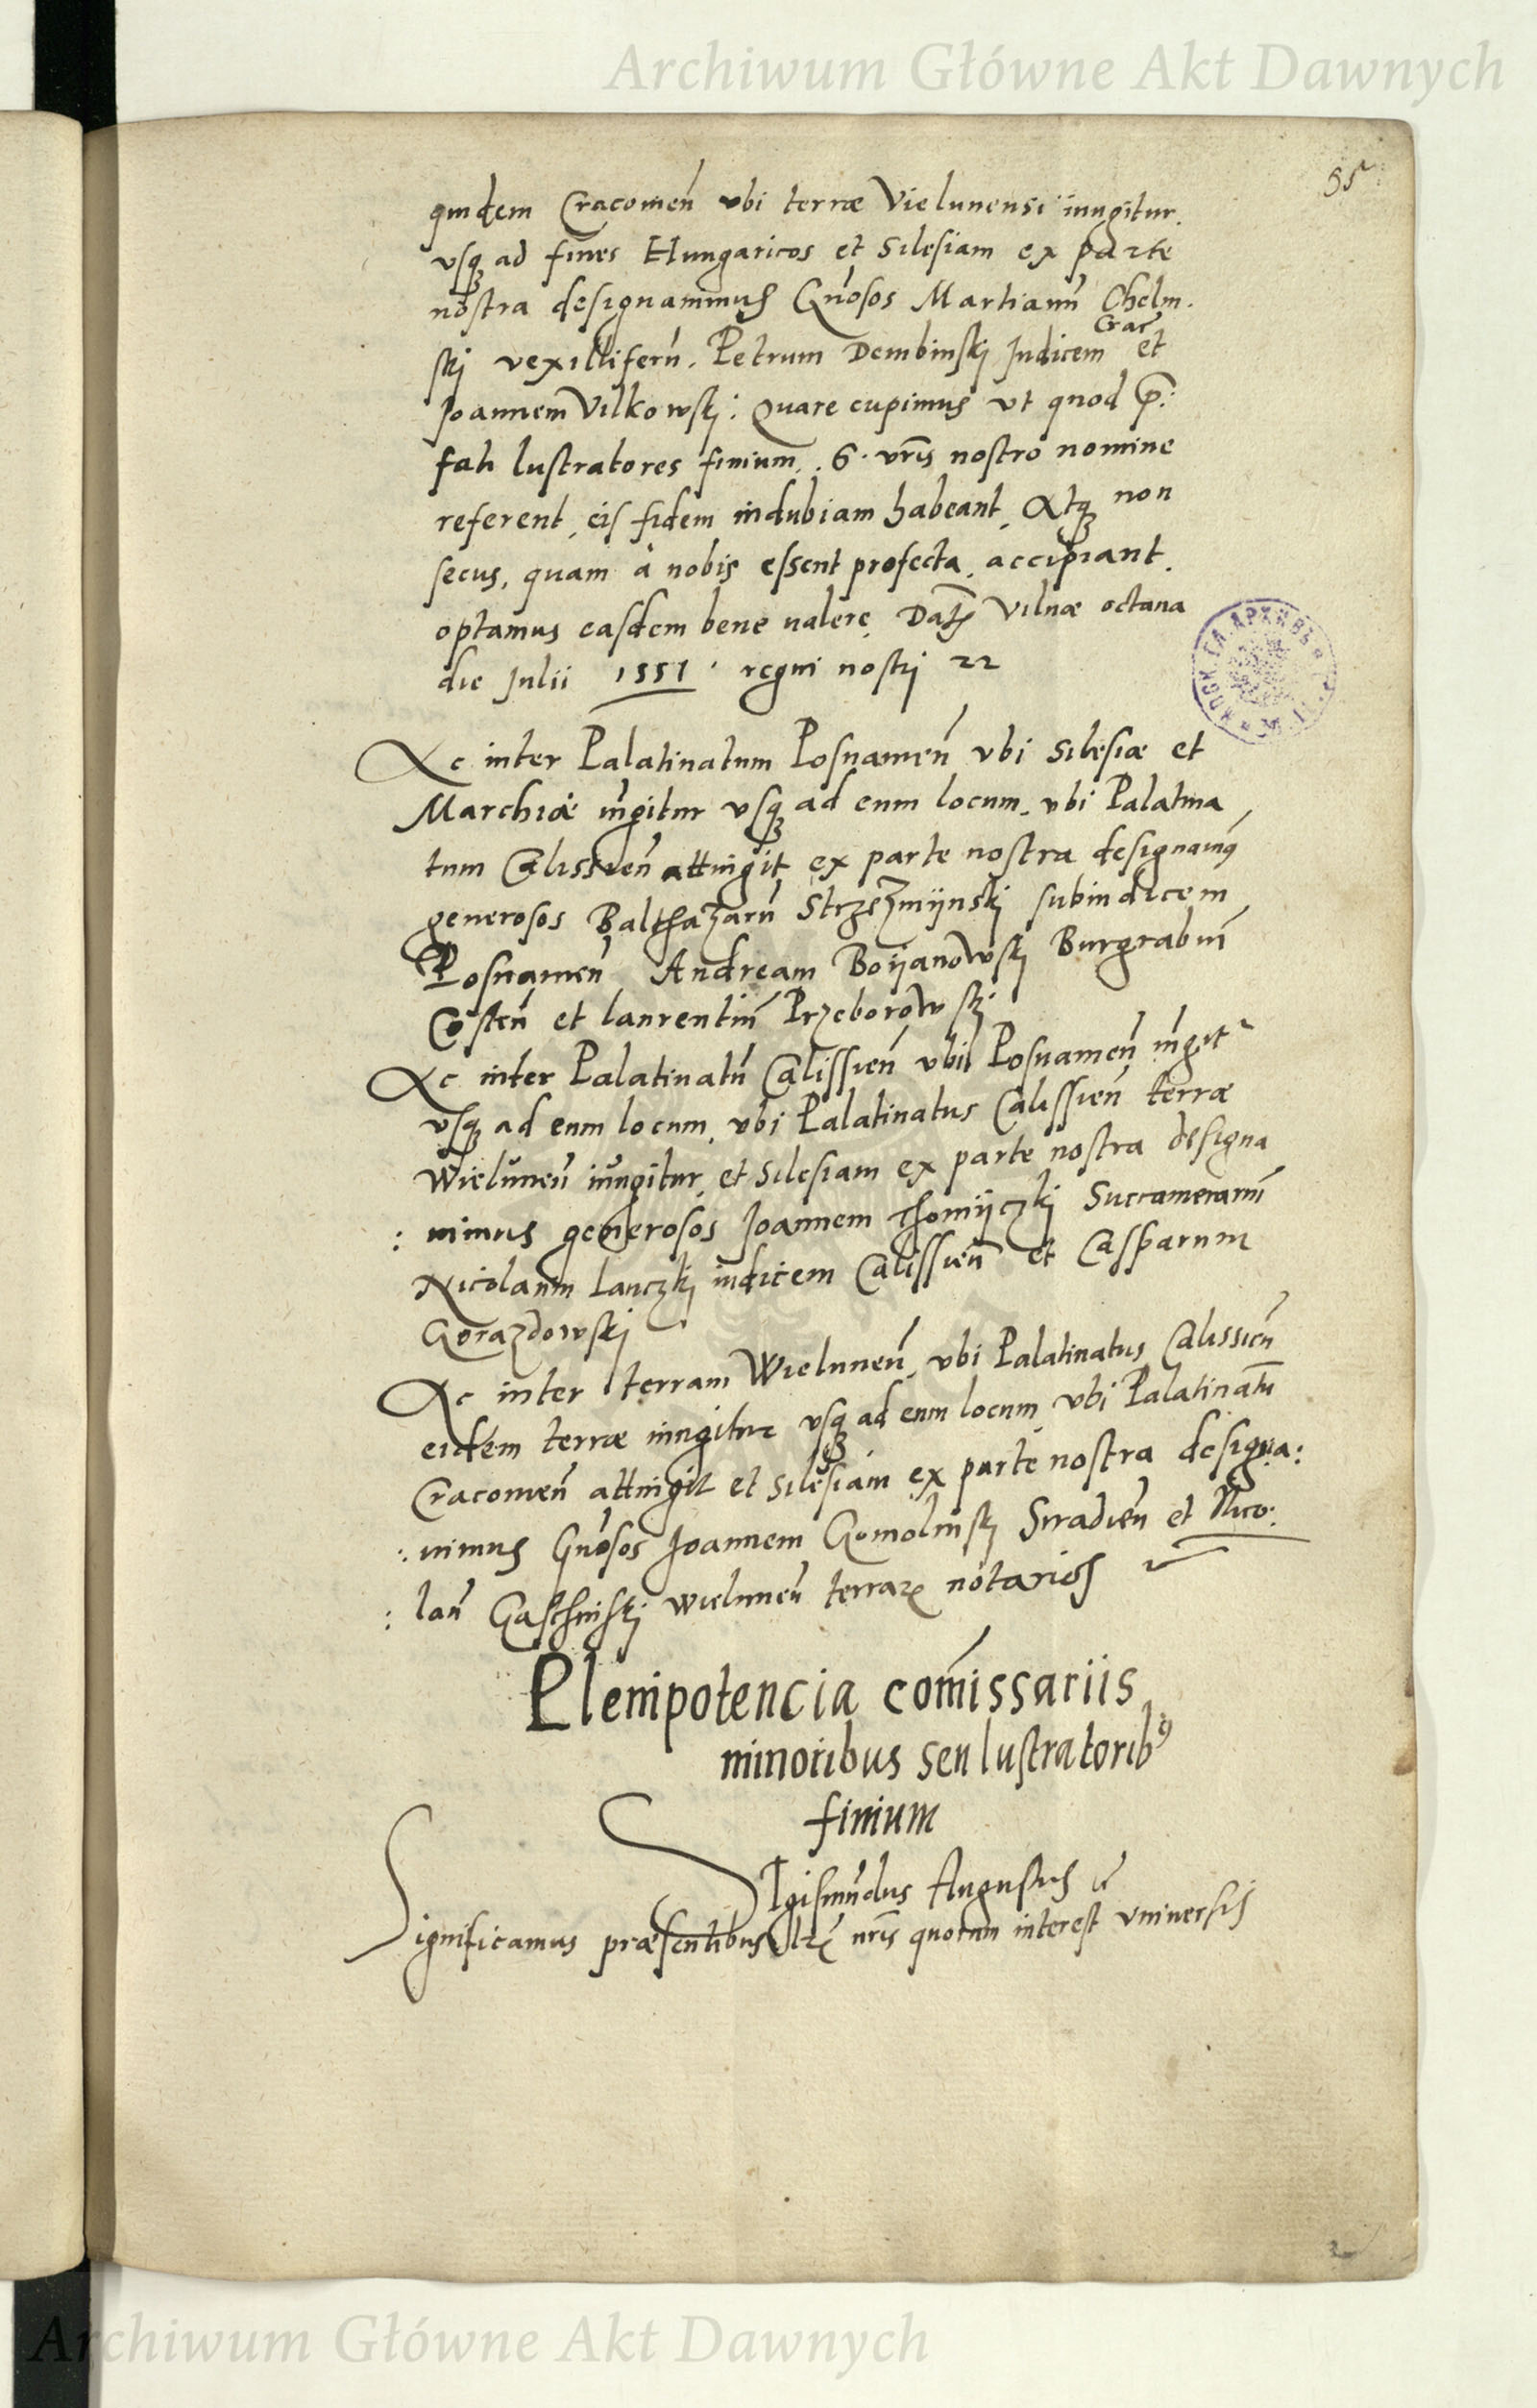 Archiwum Główne Akt Dawnych
55
quidem Cracouień vbi terræ Vielunensi iungitur.
vsqꝫ ad fines Hungaricos et Silesiam ex parte
nostra designauimus Gñosos Martianũ Chelm.
Crac̃
ski vexilliferũ. Petrum Dembinski Iudicem et
Ioannem Vilkowski: Quare cupimus vt quod p̃:
fati lustratores finium. S. vr̃is nostro nomine
referent, eis fidem indubiam habeant, Atqꝫ non
secus, quam à nobis essent profecta, accipiant.
optamus easdem bene valere, Datꝭ Vilnæ octaua
die Iulii 1551. regni nostri 22
Ac inter Palatinatum Posnanień vbi Silesiæ et
Marchiæ iũgitur vsqꝫ ad eum locum, vbi Palatina
tum Calissień attingit ex parte nostra designauimꝰ
generosos Balthazarũ Strzezmijnski subiudicem
Posnanień Andream Boijanowski Burgrabiũ
Costeń et Laurentiũ Przeborowski
Ac inter Palatinatũ Calissień vbi Posnanień iũgit᷑
vsqꝫ ad eum locum, vbi Palatinatus Calissień terræ
Wieluneń iũngitur, et Silesiam ex parte nostra designa
: uimus generosos Ioannem Thomijczki Succamerariũ
Nicolaum Lanczki iudicem Calissień et Casparum
Gorazdowski
Ac inter terram Wieluneń, vbi Palatinatus Calissień
eidem terræ iungitur vsqꝫ ad eum locum vbi Palatinatũ
Cracouień attingit et Silesiam ex parte nostra designa:
: uimus Gñosos Ioannem Gomolinski Siradień et Nico:
: laũ Gaschinski Wieluneń terrarꝭ notarios
Plenipotencia com̃issariis
minoribus seu lustratoribꝰ
finium
Sigismũdus Augustus
Significamus præsentibus lr̃is nr̃is quorum interest vniuersis
Archiwum Główne Akt Dawnych